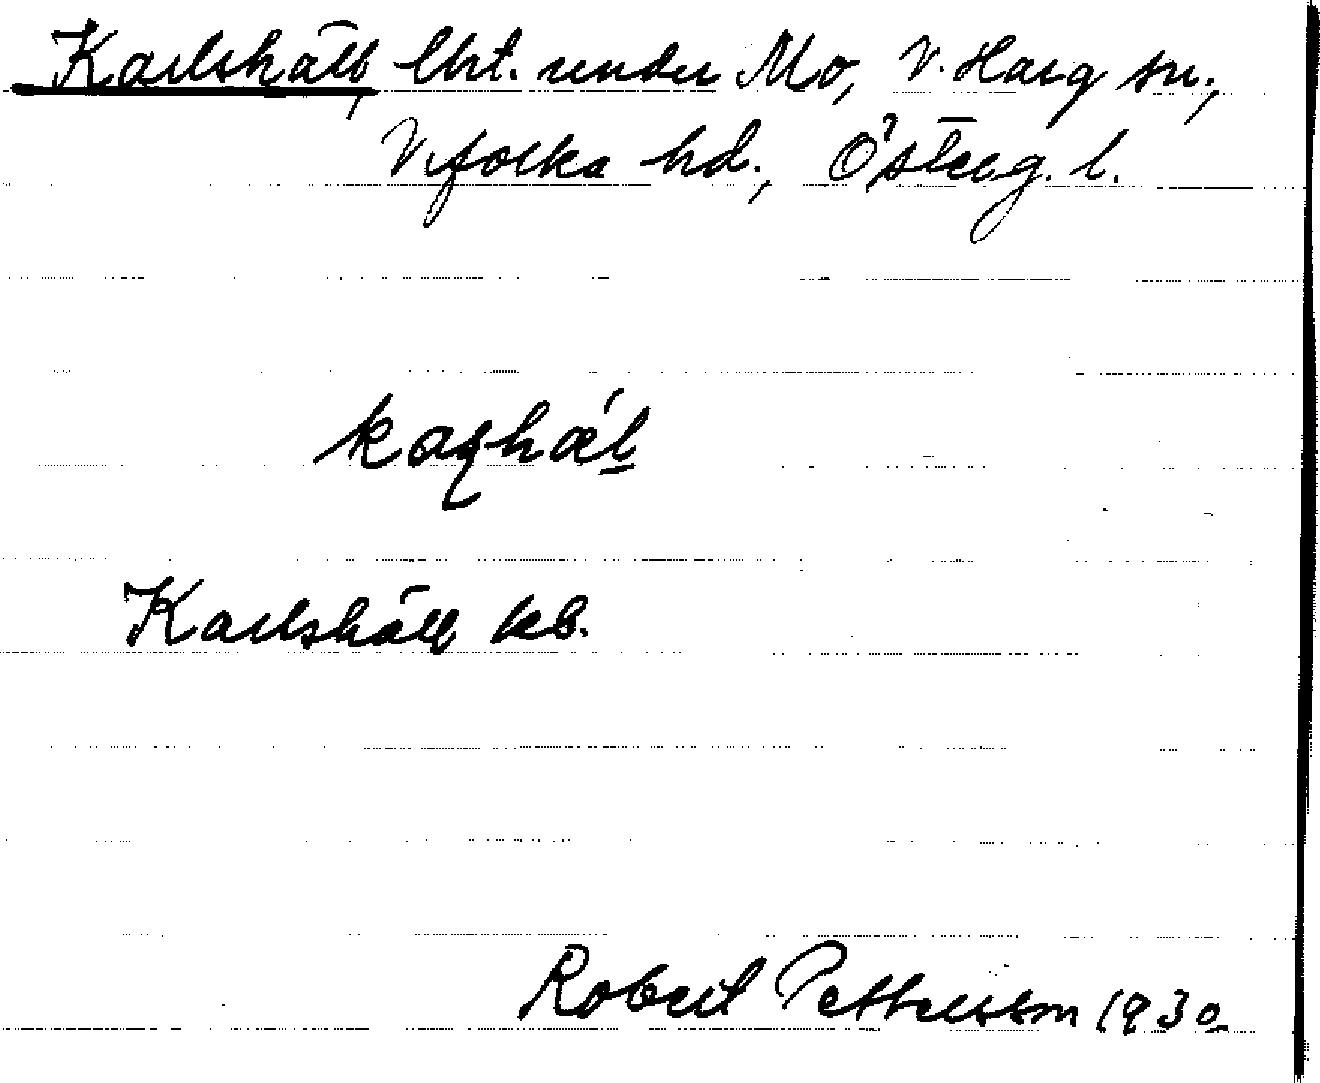 Karlshäll, lht. under Mo, V. Harg sn.,
Vifolka hd., Österg. l.
kaꞩhǽl
Karlshäll kb.
Robert Pettersson 1930